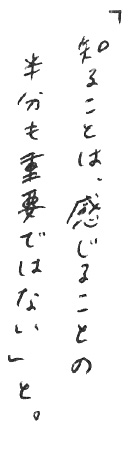 「知ることは、感じることの
半分も重要ではない」と。